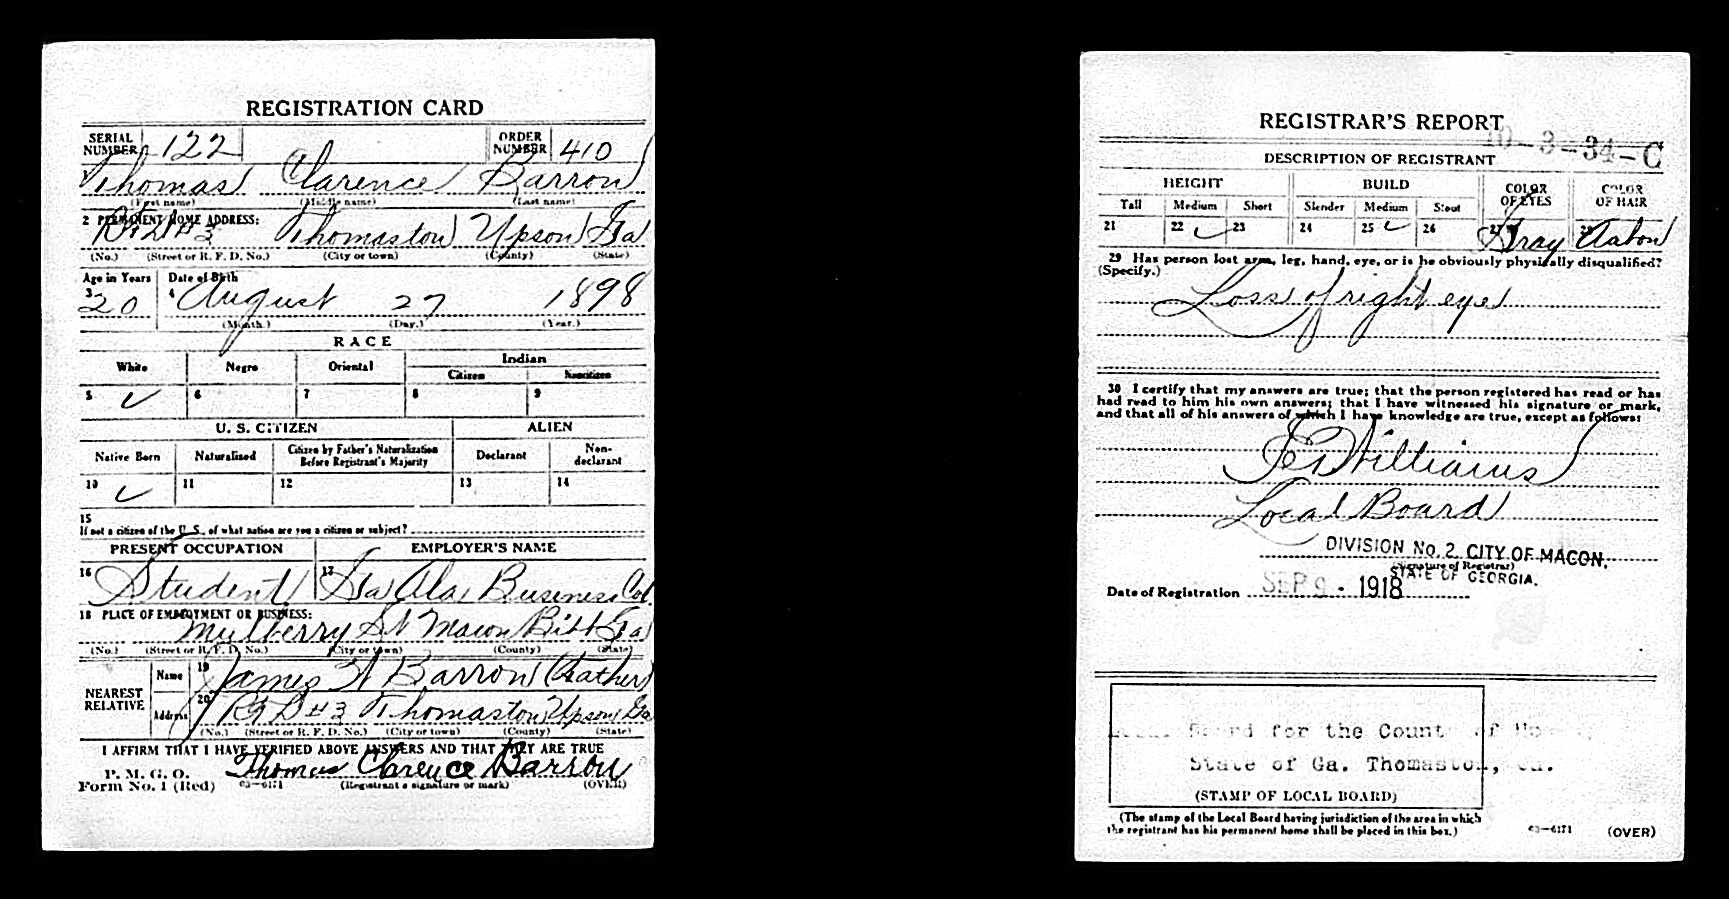 REGISTRATION CARD
SERIAL NUMBER 122 ORDER NUMBER 410
Thomas Clarence Barron
(First name) (Middle name) (Last name)
2 PERMANENT HOME ADDRESS:
RFD #3 Thomaston Upson Ga
(No.) (Street or R. F. D. No.) (City or town) (County) (State)
Age in Years Date of Birth
3 20 4 August 27 1898
(Month.) (Day.) (Year.)
RACE
White Negro Oriental Indian
Citizen Noncitizen
5 ✓ 6 7 8 9
U. S. CITIZEN ALIEN
Native Born Naturalized Citizen by Father's Naturalization Before Registrant's Majority Declarant Non-declarant
10 ✓ 11 12 13 14
15
If not a citizen of the U. S., of what nation are you a citizen or subject?
PRESENT OCCUPATION EMPLOYER'S NAME
16 Student 17 Ga Ala Business Col
18 PLACE OF EMPLOYMENT OR BUSINESS:
Mulberry St Macon Bibb Ga
(No.) (Street or R. F. D. No.) (City or town) (County) (State)
NEAREST RELATIVE
Name 19 James A Barron (Father)
Address 20 RFD #3 Thomaston Upson Ga
(No.) (Street or R. F. D. No.) (City or town) (County) (State)
I AFFIRM THAT I HAVE VERIFIED ABOVE ANSWERS AND THAT THEY ARE TRUE
P. M. G. O.
Form No. 1 (Red) 03—6171 Thomas Clarence Barron
(Registrant's signature or mark) (OVER)
REGISTRAR'S REPORT
10-3-34-C
DESCRIPTION OF REGISTRANT
HEIGHT BUILD COLOR OF EYES COLOR OF HAIR
Tall Medium Short Slender Medium Stout
21 22 ✓ 23 24 25 ✓ 26 27 Gray 28
29 Has person lost arm, leg, hand, eye, or is he obviously physically disqualified?
(Specify.)
Loss of right eye
30 I certify that my answers are true; that the person registered has read or has
had read to him his own answers; that I have witnessed his signature or mark,
and that all of his answers of which I have knowledge are true, except as follows:
Williams
Local Board
DIVISION No. 2 CITY OF MACON,
(Signature of Registrar)
STATE OF GEORGIA.
Date of Registration SEP 9 - 1918
Local Board for the County of
State of Ga. Thomaston, Ga.
(STAMP OF LOCAL BOARD)
(The stamp of the Local Board having jurisdiction of the area in which
the registrant has his permanent home shall be placed in this box.)
03—6171 (OVER)